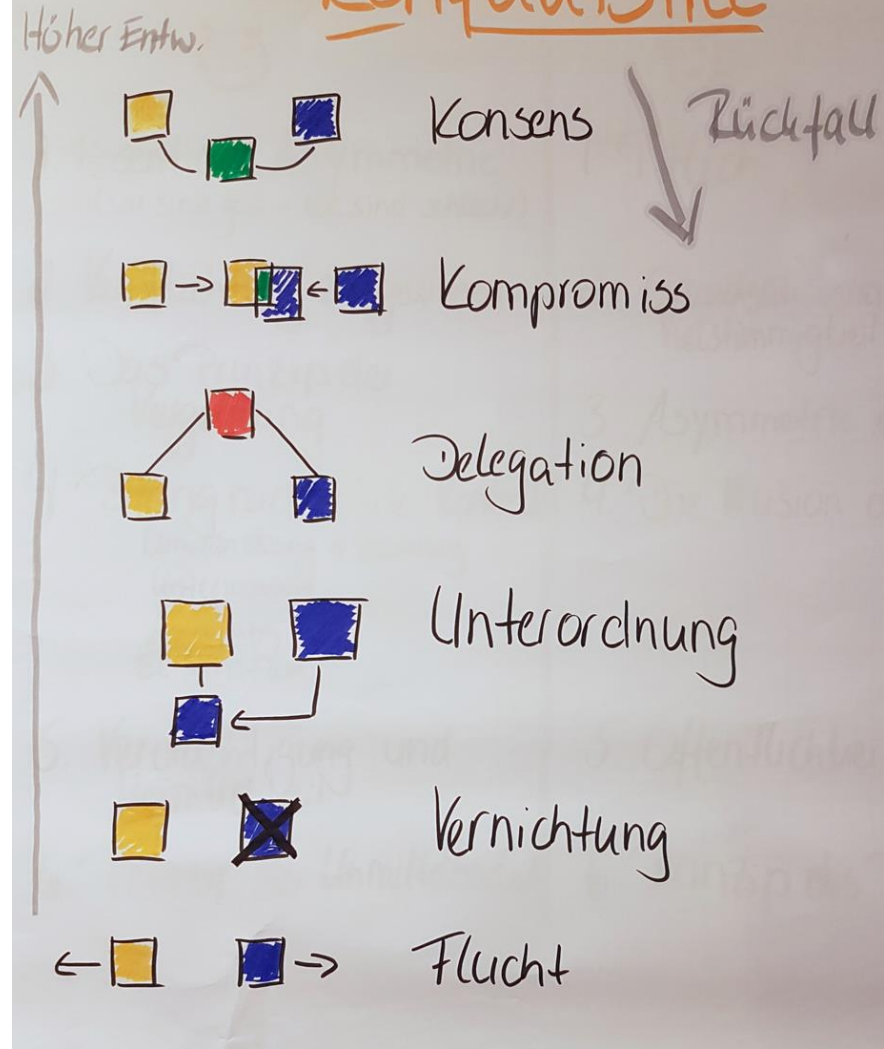 Höher Entw.
Konsens
Rückfall
Kompromiss
Delegation
Unterordnung
Vernichtung
Flucht